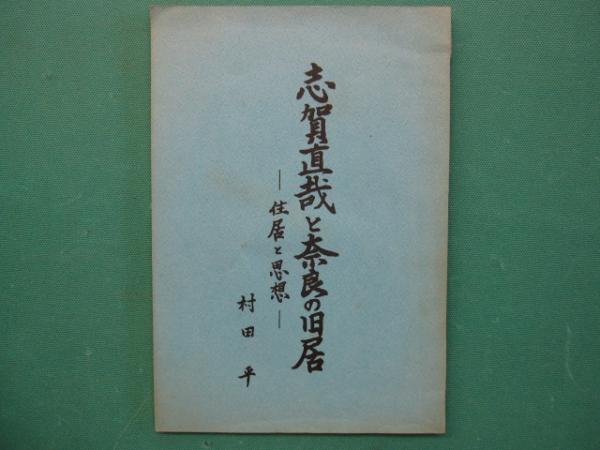 志賀直哉と奈良の旧居
―住居と思想―
村田平